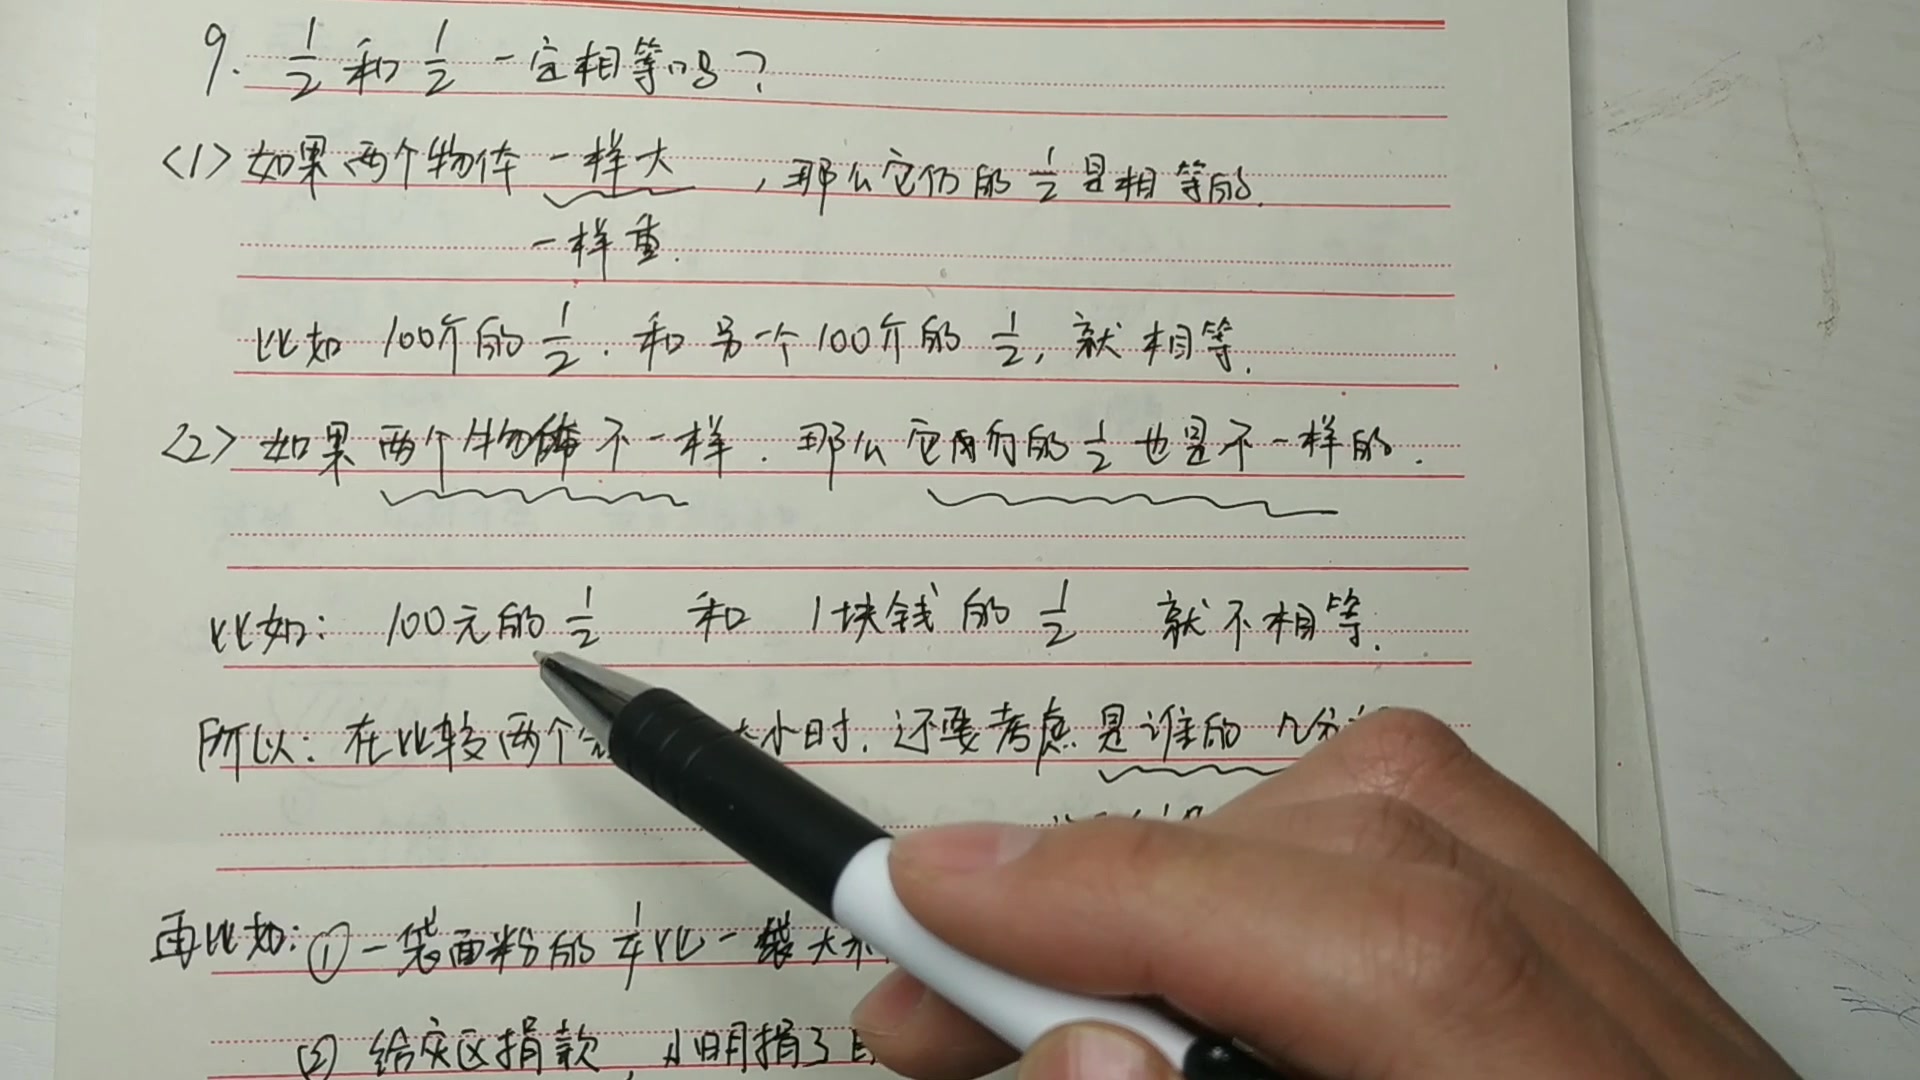 9. 1/2 和 1/2 一定相等吗?
<1> 如果两个物体一样大,那么它们的 1/2 是相等的.
一样重.
比如 100个的 1/2. 和另一个100个的 1/2, 就相等.
<2> 如果两个物体不一样. 那么它们的 1/2 也是不一样的.
比如: 100元的 1/2 和 1块钱的 1/2 就不相等.
所以: 在比较两个 大小时. 还要考虑是谁的几分
再比如: ① 一袋面粉的 1/4 比一袋大
② 给灾区捐款, 小明捐了